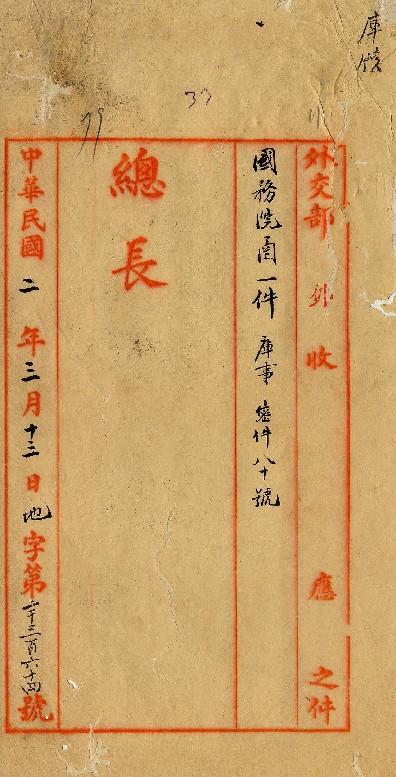 庫
33
外交部 收 應 之件
國務院函一件 庫事 密件八十號
總長
中華民國二年三月十三日地字第三百六十四號